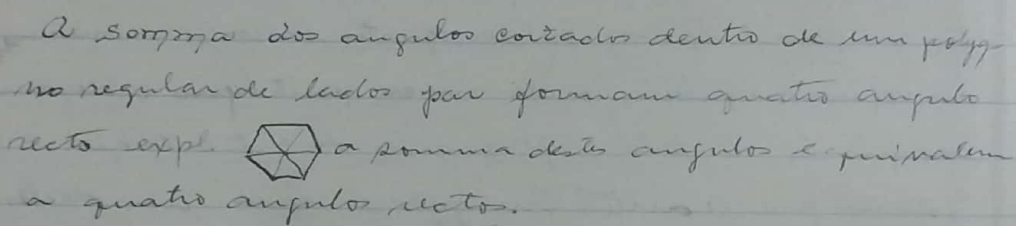 A somma dos angulos cortados dentro de um polyg-
no regular de lados par formam quatro angulo
recto exp. a somma destes angulos equivalem
a quatro angulos rectos.